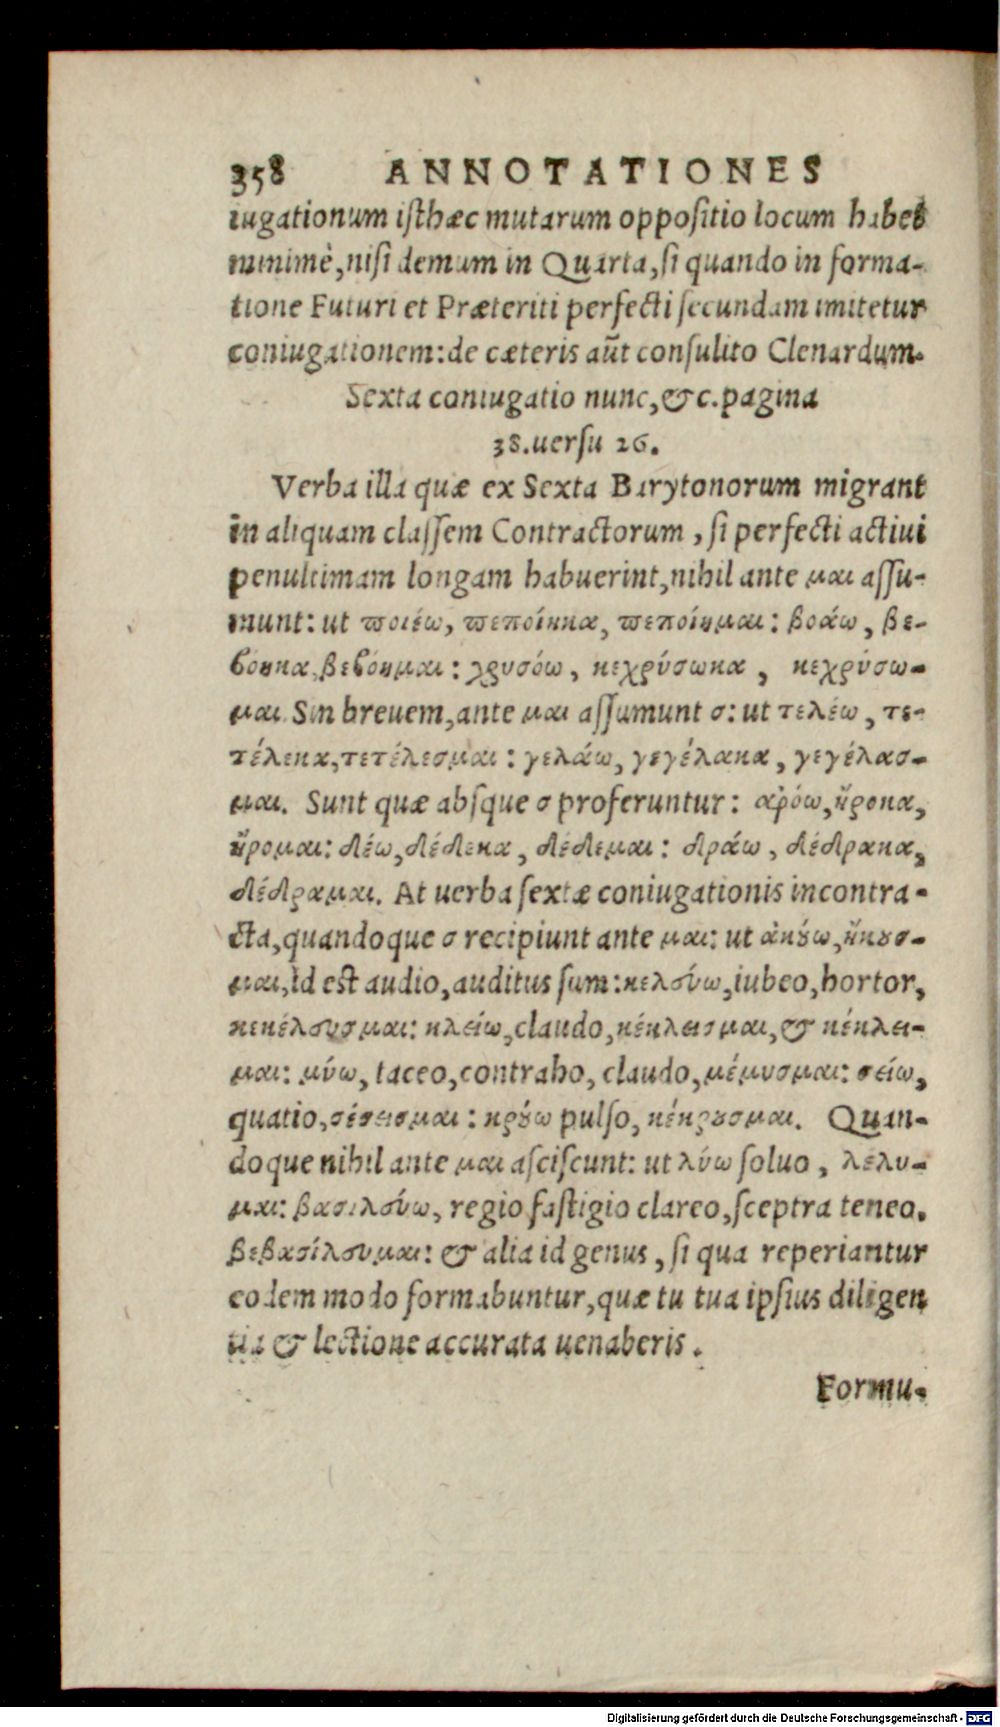 358 ANNOTATIONES
iugationum isthæc mutarum oppositio locum habet
minimè, nisi demum in Quarta, si quando in forma-
tione Futuri et Præteriti perfecti secundam imitetur
coniugationem: de cæteris aũt consulito Clenardum.
Sexta coniugatio nunc, &c. pagina
38. uersu 26.
Verba illa quæ ex Sexta Barytonorum migrant
in aliquam classem Contractorum, si perfecti actiui
penultimam longam habuerint, nihil ante μαι assu-
munt: ut ποιέω, πεποίηκα, πεποίημαι: βοάω, βε-
βόηκα, βεβόημαι: χρυσόω, κεχρύσωκα, κεχρύσω-
μαι. Sin breuem, ante μαι assumunt σ: ut τελέω, τε-
τέλεκα, τετέλεσμαι: γελάω, γεγέλακα, γεγέλασ-
μαι. Sunt quæ absque σ proferuntur: αρόω, ἤροκα,
ἤρομαι: δέω, δέδεκα, δέδεμαι: δράω, δέδρακα,
δέδραμαι. At uerba sextæ coniugationis incontra-
cta, quandoque σ recipiunt ante μαι: ut ἀκούω, ἤκουσ-
μαι, id est audio, auditus sum: κελεύω, iubeo, hortor,
κεκέλευσμαι: κλείω, claudo, κέκλεισμαι, & κέκλει-
μαι: μύω, taceo, contraho, claudo, μέμυσμαι: σείω,
quatio, σέσεισμαι: κρούω pulso, κέκρουσμαι. Quan-
doque nihil ante μαι asciscunt: ut λύω soluo, λέλυ-
μαι: βασιλεύω, regio fastigio clareo, sceptra teneo.
βεβασίλευμαι: & alia id genus, si qua reperiantur
eodem modo formabuntur, quæ tu tua ipsius diligen
tia & lectione accurata uenaberis.
Formu-
Digitalisierung gefördert durch die Deutsche Forschungsgemeinschaft - DFG